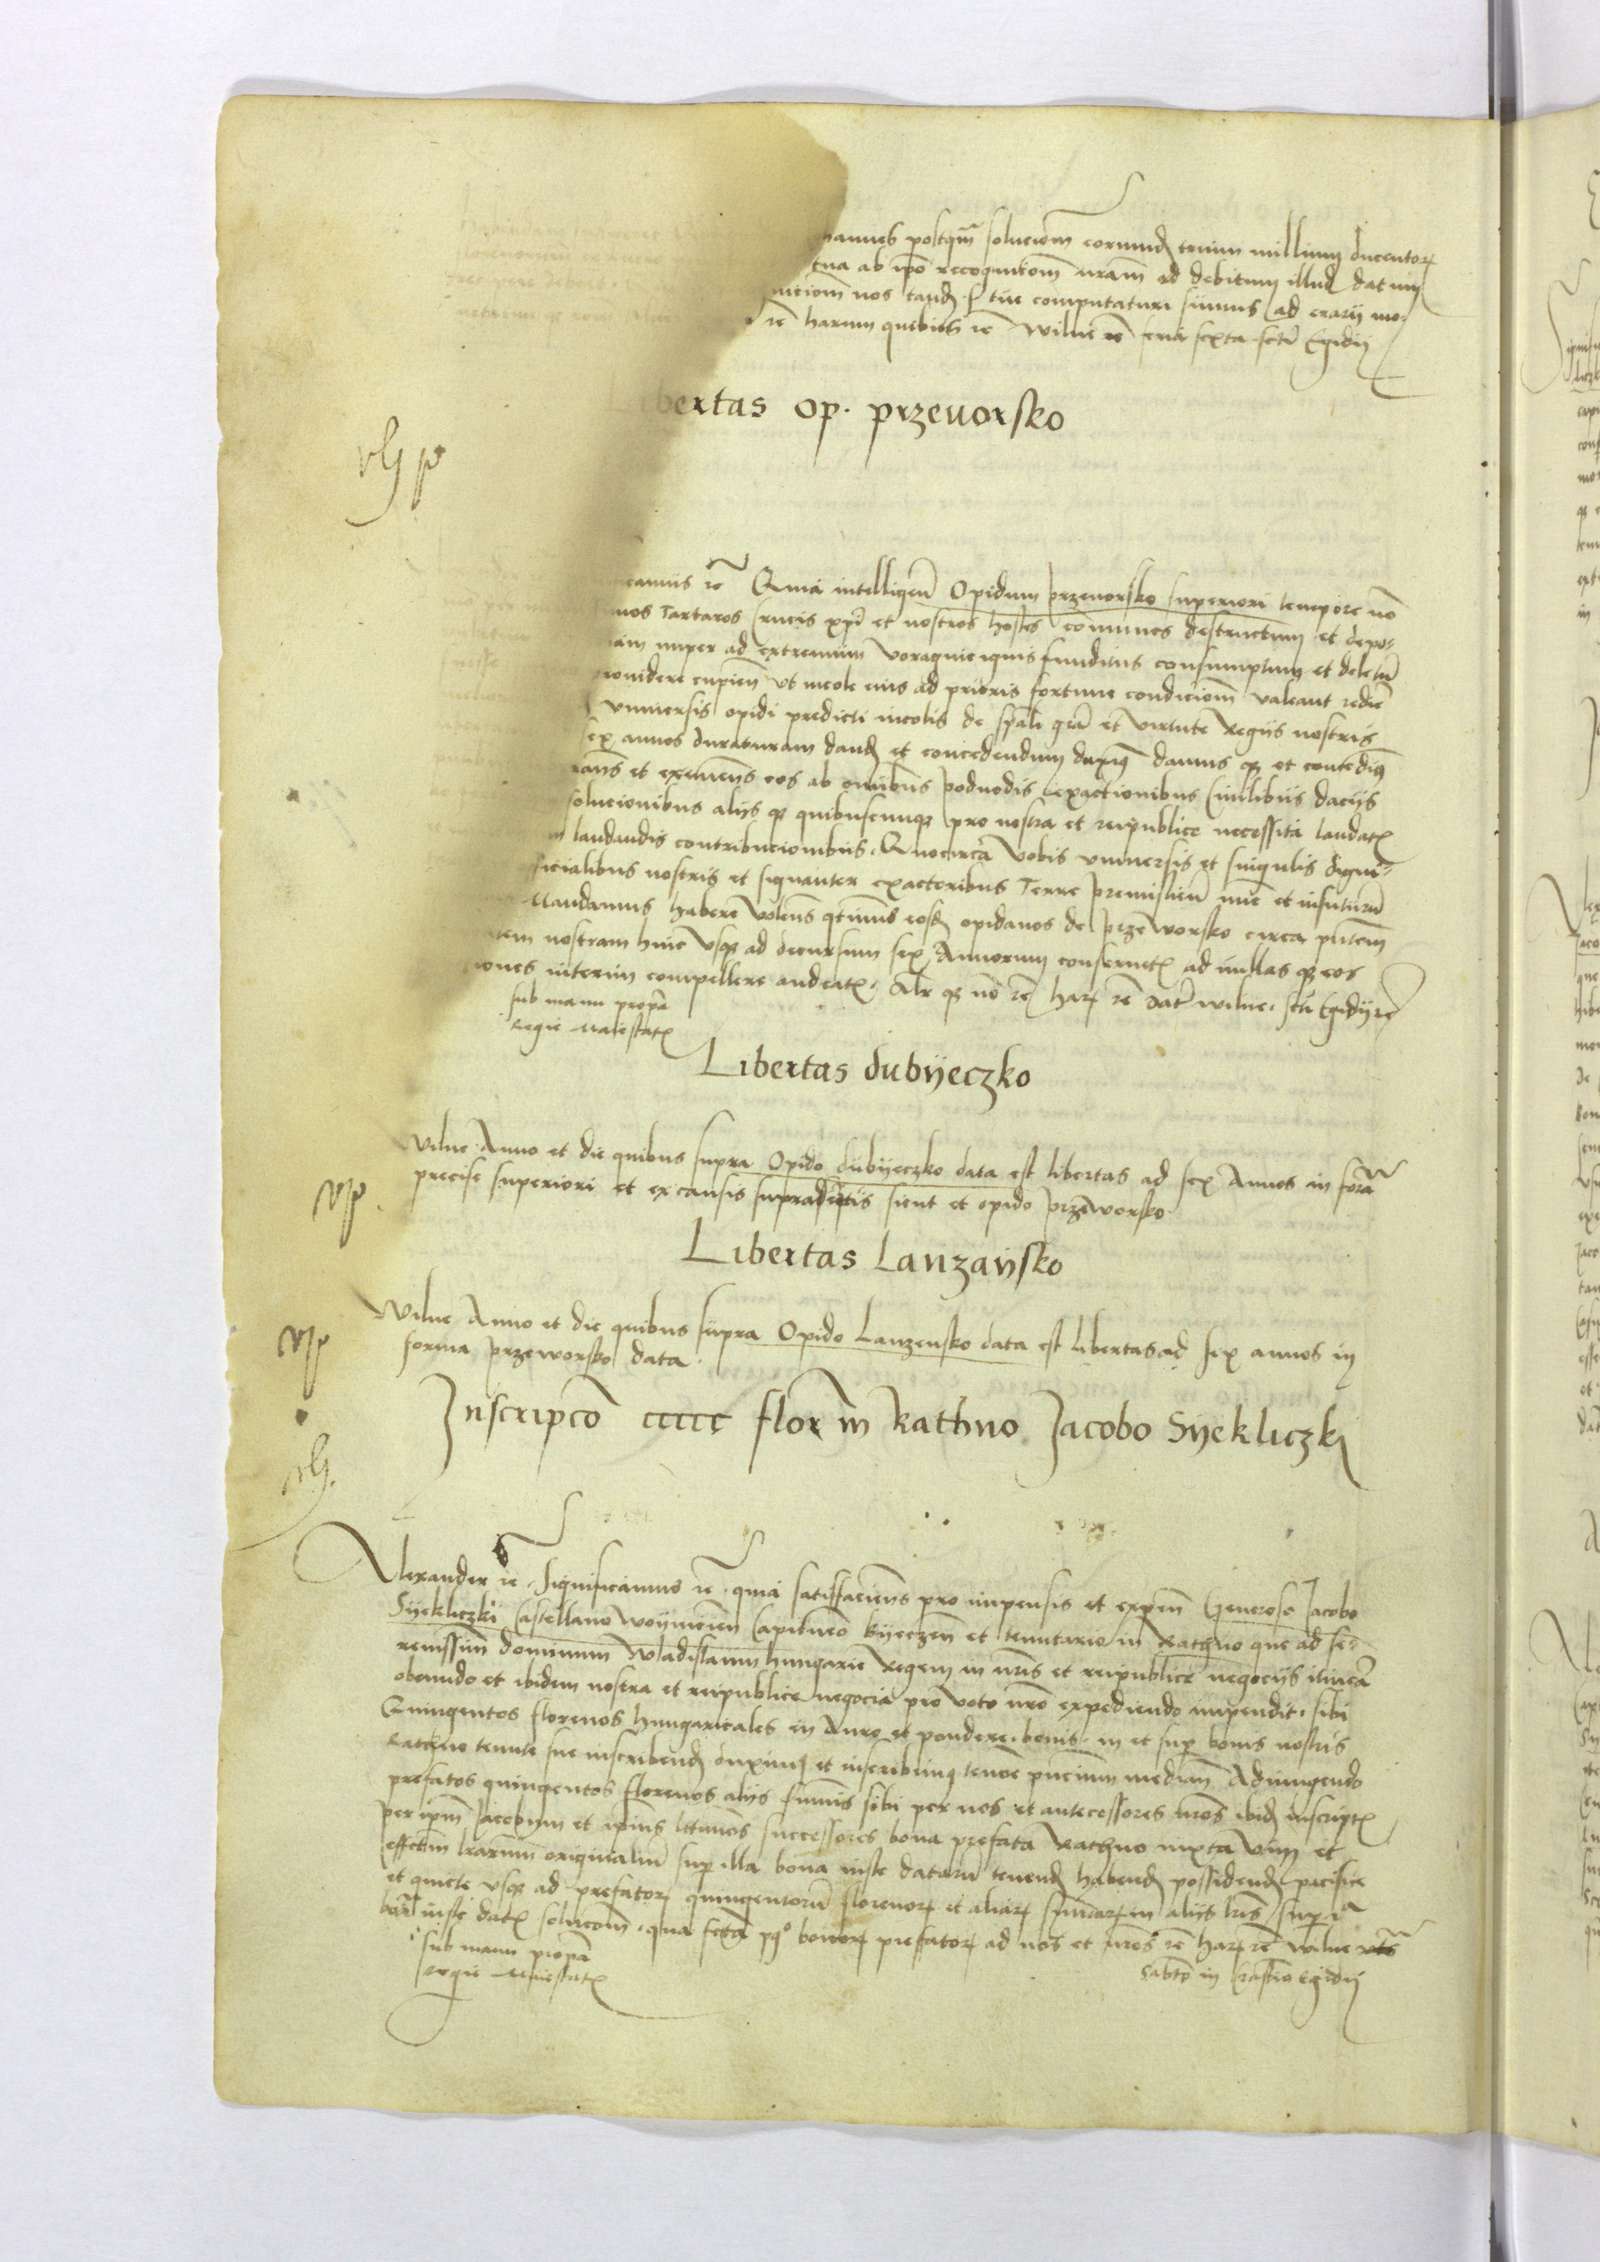 postqm solucionem eorund trium millium ducentor
ab ipo recognitom nram ad debitum illud datum
nos tand computaturi sumus ad erarij mo-
re harum quibus re Wilne re feria sexta Egidij
bertas op. przeuorsko
re Quia intelligen Opidum przeuorsko superiori tempore no
mos Tartaros Crucis xpi et nostros hostes comunes destructum et depo-
nuper ad extremum voragine ignis funditus consumptum et deletu
rouidere cupien vt incole eius ad prioris fortune condiciom valeant redire
vniuersis opidi predicti incolis de spali gra et virtute Regiis nostris
sex annos duraturam dand et concedendum duxim damus q et concedim
et eximens eos ab omibus podvodis exactionibus Ciuilibus daciis
solucionibus aliis q quibuscunq pro nostra et reipublice necessita laudatis
laudandis contribucionibus. Quocirca vobis vniuersis et singulis digni-
ficialibus nostris et signanter exactoribus Terre premislien nuc et in futuru
Mandamus habere volens qtinus eosd opidanos de przeworsko circa
tem nostram hinc vsq ad decursum sex Annorum conseruetis ad nullas q eos
iones interim compellere audeatis. Alr q no re har re dat wilne. Egidij re
sub manu propa
Regie Maiestatis
Libertas dubyeczko
Wilne Anno et die quibus supra Opido dubyeczko data est libertas ad sex Annos in forma
precise superiori et ex causis supradictis sicut et opido przeworsko
vp.
Libertas Lanzansko
Wilne Anno et die quibus supra Opido Lanzensko data est libertas ad sex annos in
forma przeworsko data.
Inscripco ccccc flor in Rathno Jacobo Syekliczki
Alexander re. Significamus re. quia satisfaciens pro impensis et expen Generoso Jacobo
Syekliczki Castellano Woynicien Capitaneo Byeczen et tenutario in Rathno que ad se-
renissim dominum Wladislaum hungarie Regem in nris et reipublice negociis itinera
obeundo et ibidem nostra et reipublice negocia pro voto nro expediendo impendit. sibi
Quingentos florenos hungaricales in Auro et pondere bonis. in et sup bonis nostris
Rathno tenute sue inscribend duxim et inscribim tenore pncium median Adiungendo
prefatos quingentos florenos aliis summis sibi per nos et antecessores nros ibid inscriptis
per ipm Jacobum et ipius lttimos successores bona prefata Rathno iuxta vim et
effectum lrarum originalium sup illa bona iuste datarum tenend habend possidend pacifice
et quiete vsq ad prefator quingentorum florenor et aliar summar in aliis lris sup
bona iuste datis solucom. qua fcta bonor prefator ad nos et nros re har re Wilne
sub manu propa
Regie Maiestatis
Sabto in Crastino Egidij